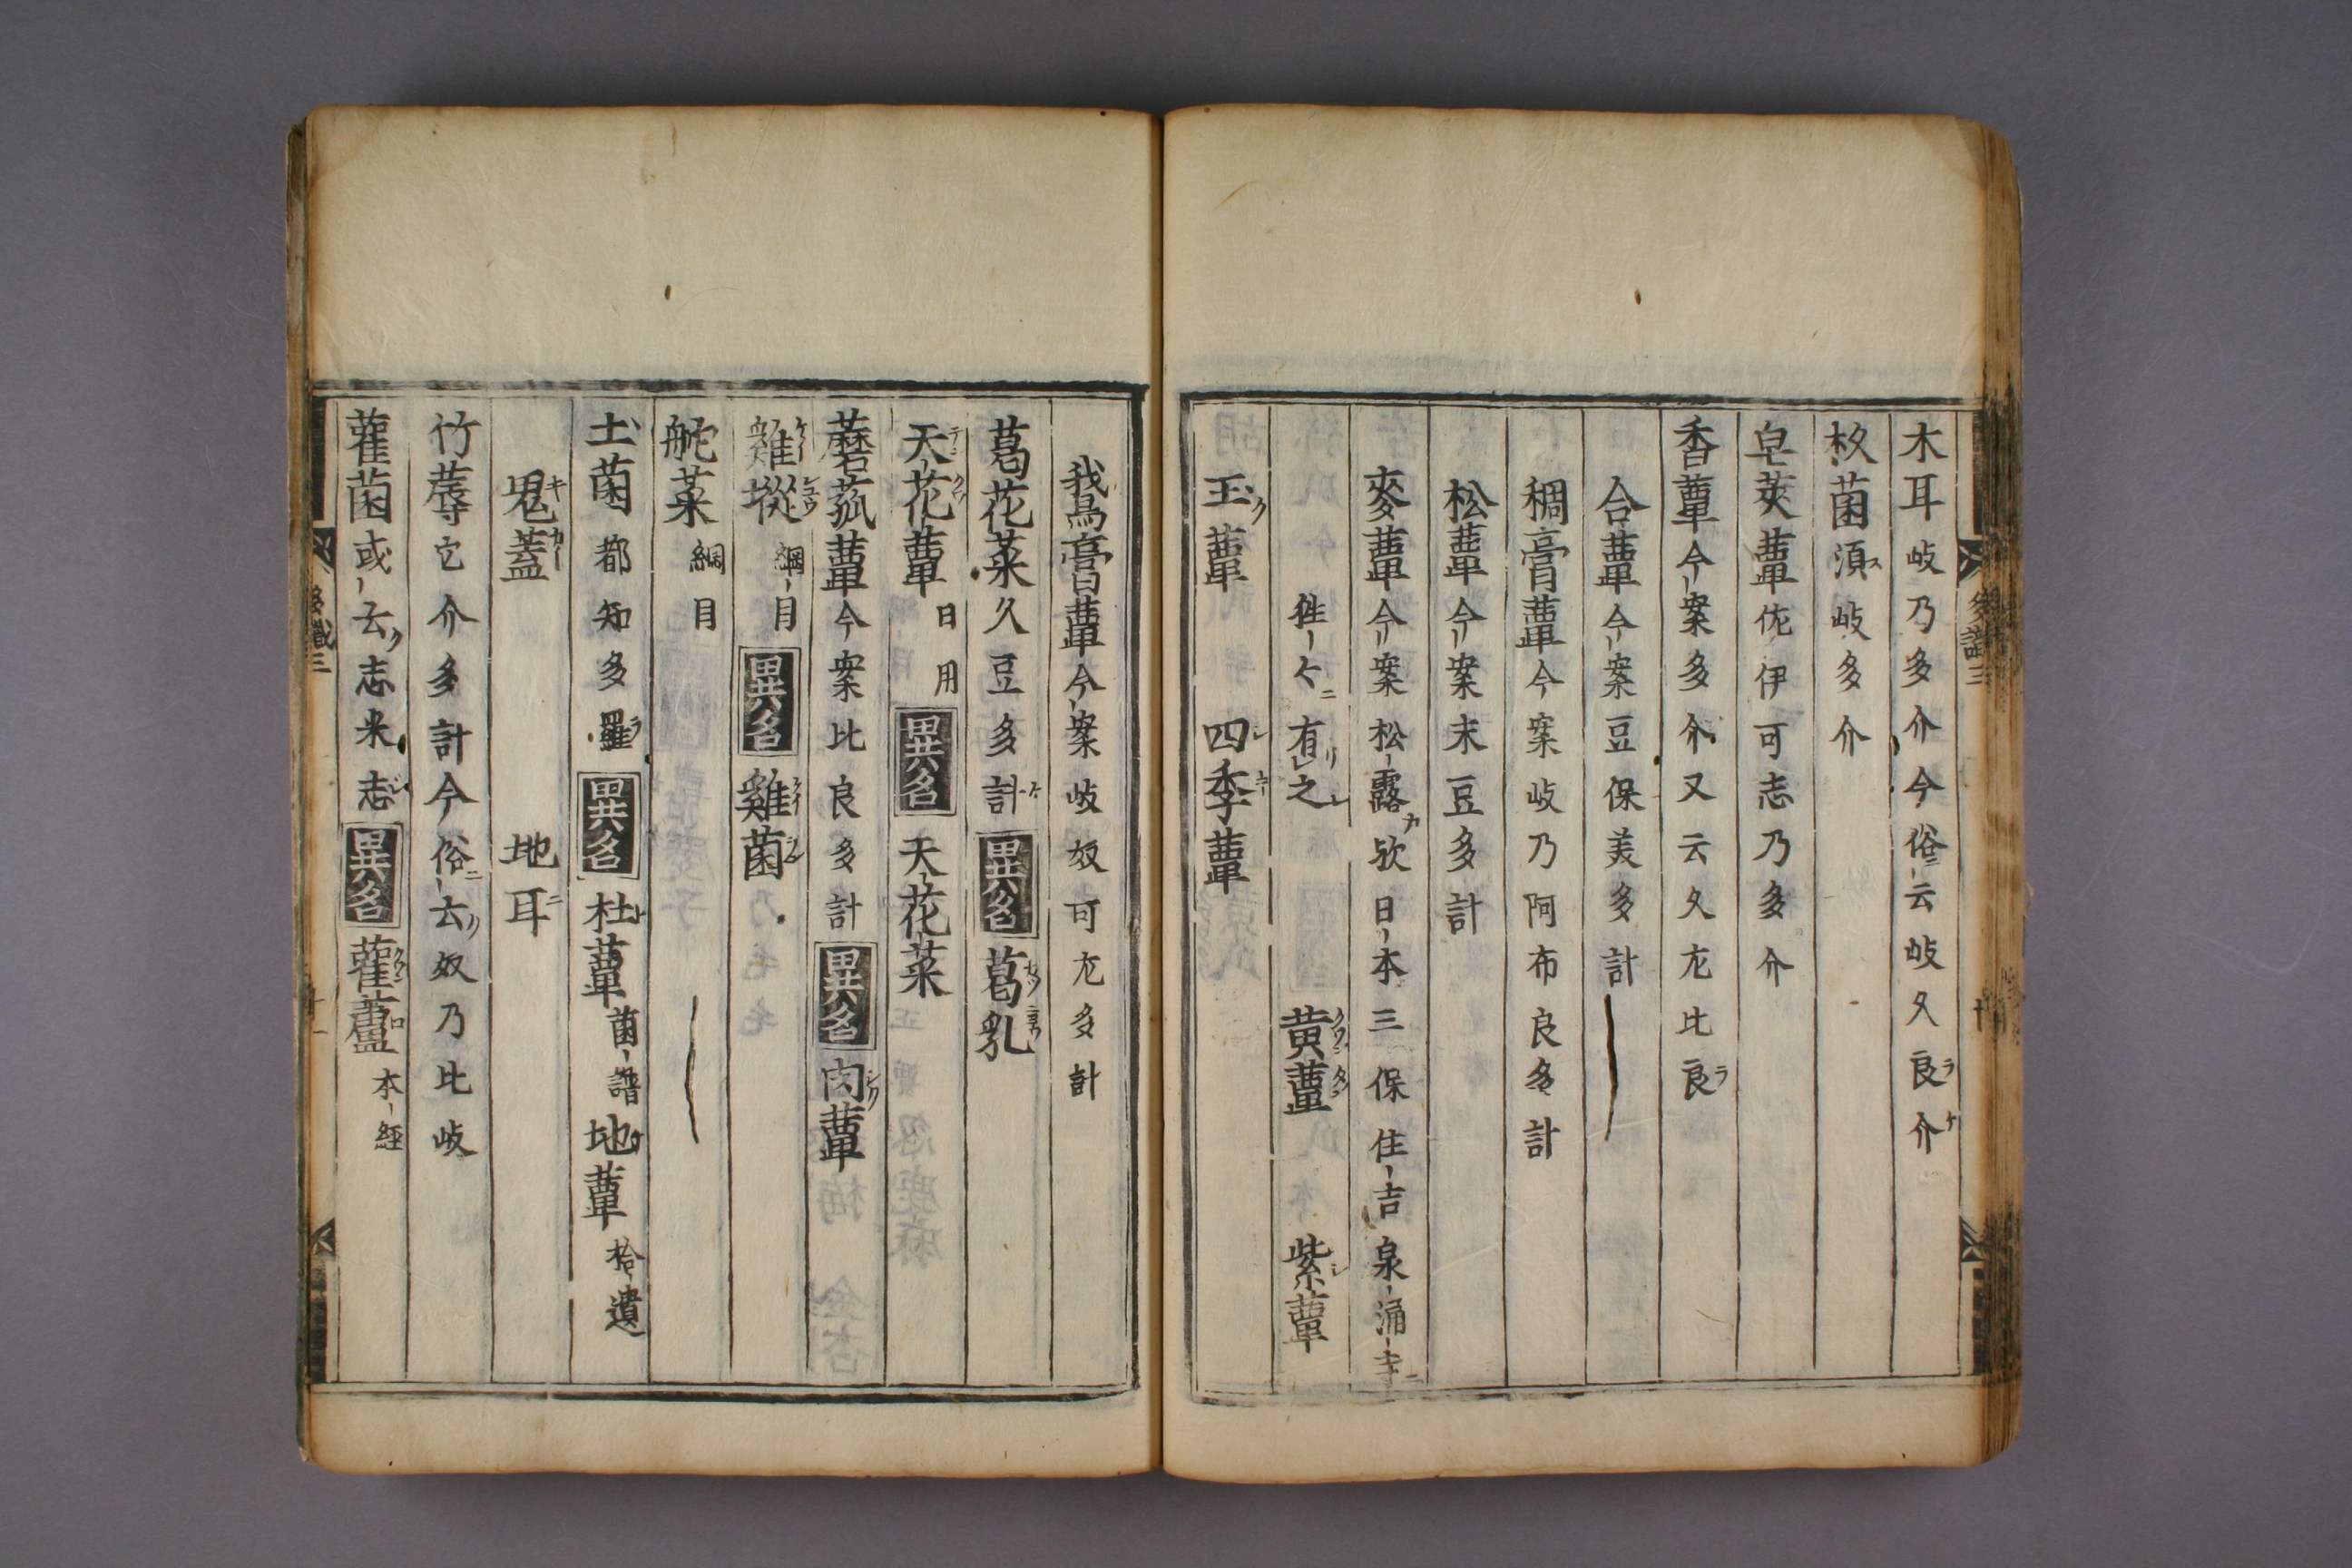 木耳岐乃多介今俗ニ云岐久良介
杦菌湏岐多介
皂莢蕈佐伊可志乃多介
香蕈今案多介又云久尤比良
合蕈今案豆保美多計
稠膏蕈今案岐乃阿布良多計
松蕈今案末豆多計
麥蕈今案松露欤日本三保住吉泉涌寺ニ
徃々ニ有之 黄蕈 紫蕈
玉蕈 四季蕈
我鳥膏蕈今案岐奴可尤多計
葛花菜久豆多計 異名 葛乳
天花蕈 日用 異名 天花菜
蘑菰蕈今案比良多計 異名 肉蕈
雞㙡 綱目 異名 雞菌
舵菜 綱目
土菌都知多羅 異名 杜蕈 菌譜 地蕈 拾遺
鬼蓋 地耳
竹蓐它介多計今俗ニ云奴乃比岐
雚菌或云志米志 異名 雚蘆 本經